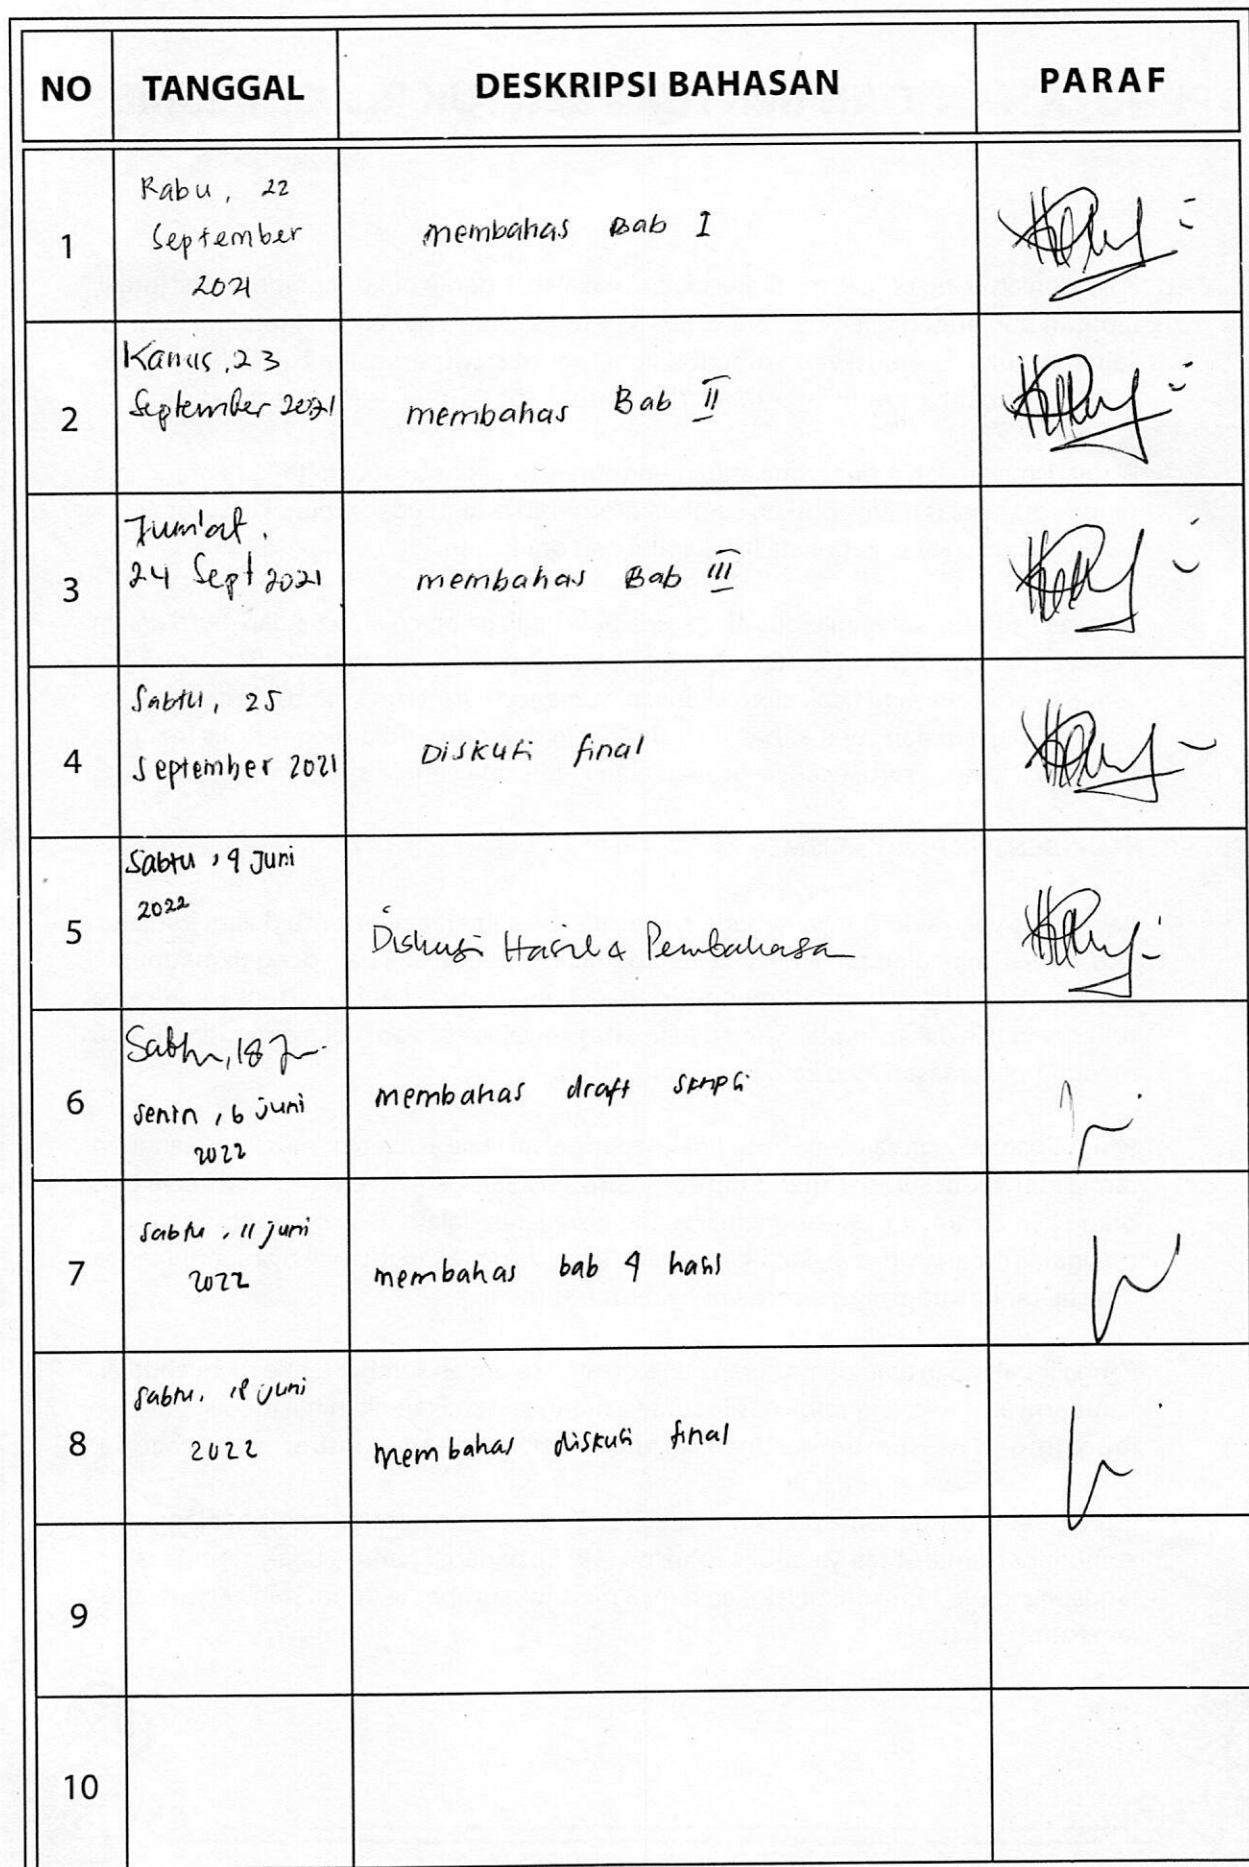 NO TANGGAL DESKRIPSI BAHASAN PARAF
Rabu, 22
September
2021
1 membahas Bab I
Kamis, 23
September 2021
2 membahas Bab II
Jum'at,
24 Sept 2021
3 membahas Bab III
Sabtu, 25
September 2021
4 Diskusi final
Sabtu, 4 Juni
2022
5 Diskusi Hasil & Pembahasa
Sabtu, 18
Senin, 6 juni
2022
6 membahas draft skripsi
Sabtu, 11 juni
2022
7 membahas bab 4 hasil
Sabtu, 18 juni
2022
8 Membahas diskusi final
9
10